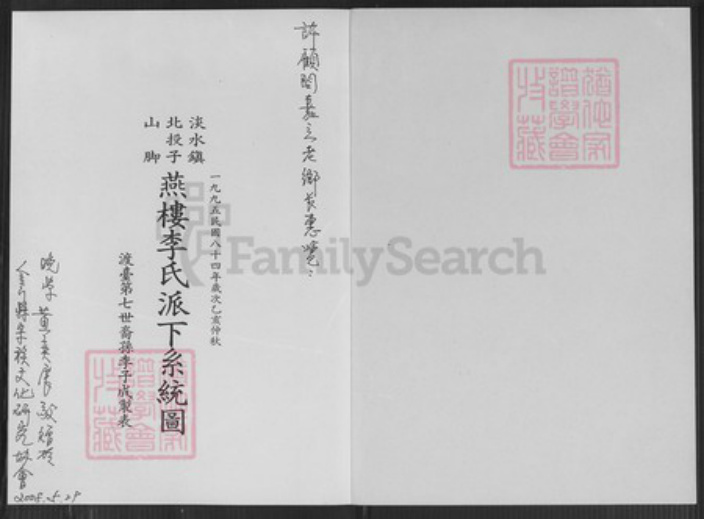 許顧問嘉立老鄉長惠覽:
淡水鎮
北投子
山腳
一九九五民國八十四年歲次乙亥仲秋
燕樓李氏派下系統圖
渡臺第七世裔孫李子成製表
晚學黃奕展敬贈於
金門縣宗族文化研究協會
2008.5.29
譜學會
收藏
譜學會
收藏
FamilySearch